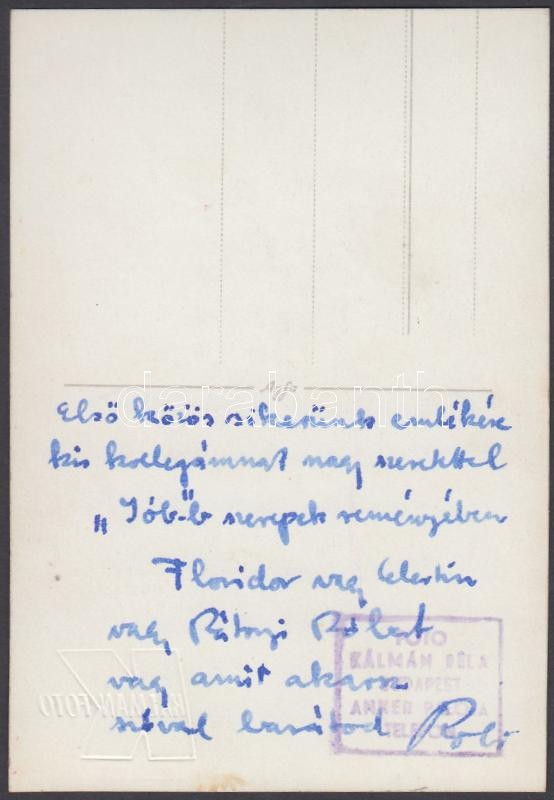 Agfa
darabanth
Első közös sikerünk emlékére
kis kollegámnat nagy szeretettel
„Jób-"b szerepek reményében
Floridor vagy Celestin
vagy Rátonyi Róbert
vagy amit akarsz
szóval barátod Robi
FOTO
KÁLMÁN BÉLA
BUDAPEST
ANKER PALOTA
TELEFON
KÁLMÁN-FOTO